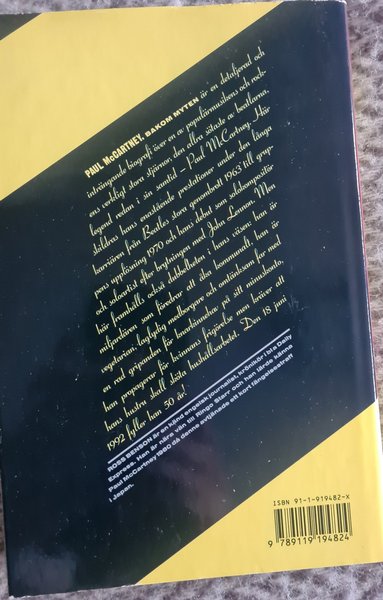 PAUL McCARTNEY, BAKOM MYTEN är en detaljerad och
inträngande biografi över en av populärmusikens och rock-
ens verkligt stora stjärnor, den allra sötaste av beatlarna,
legend redan i sin samtid – Paul McCartney. Här
skildras hans enastående prestationer under den långa
karriären från Beatles stora genombrott 1963 till grup-
pens upplösning 1970 och hans debut som solokompositör
och soloartist efter brytningen med John Lennon. Men
här framhålls också dubbelheten i hans väsen: han är
miljardären som föredrar att äta hemmamat, han är
vegetarian, laglydig medborgare och omtänksam far med
en rad gripanden för haschinnehav på sitt minuskonto,
han propagerar för kvinnans frigörelse men kräver att
hans hustru skall sköta hushållsarbetet. Den 18 juni
1992 fyller han 50 år!
ROSS BENSON är en känd engelsk journalist, krönikör i bl a Daily
Express. Han är nära vän till Ringo Starr och han lärde känna
Paul McCartney 1980 då denne avtjänade ett kort fängelsestraff
i Japan.
ISBN 91-1-919482-X
9 789119 194824